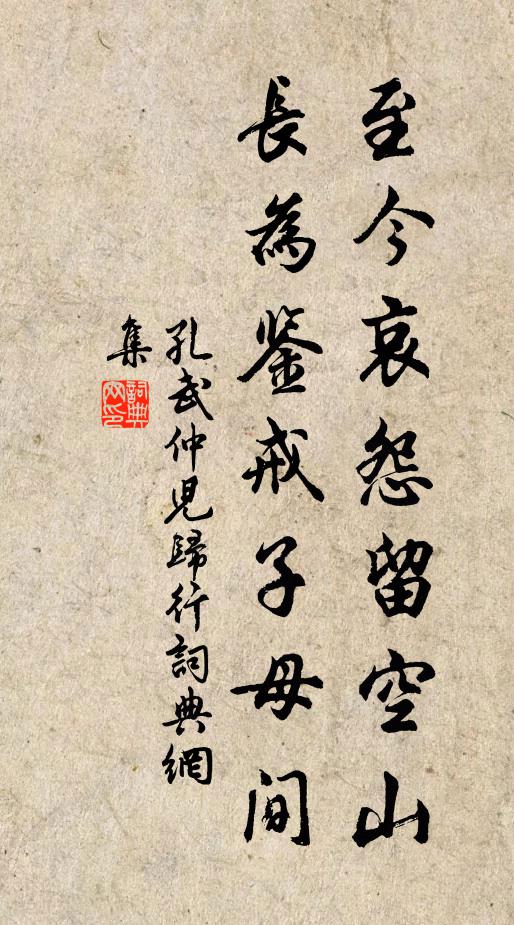 至今哀怨留空山
長為鉴戒子母间
孔武仲児歸行詞典網
集
詞典网印